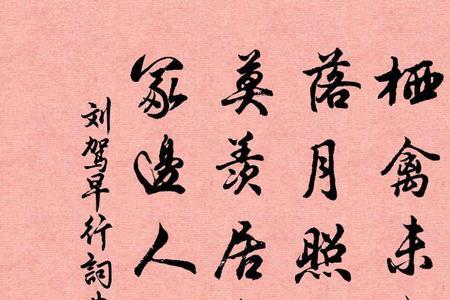 栖禽未
落月照
莫羡居
冢邊人
刘駕早行詞